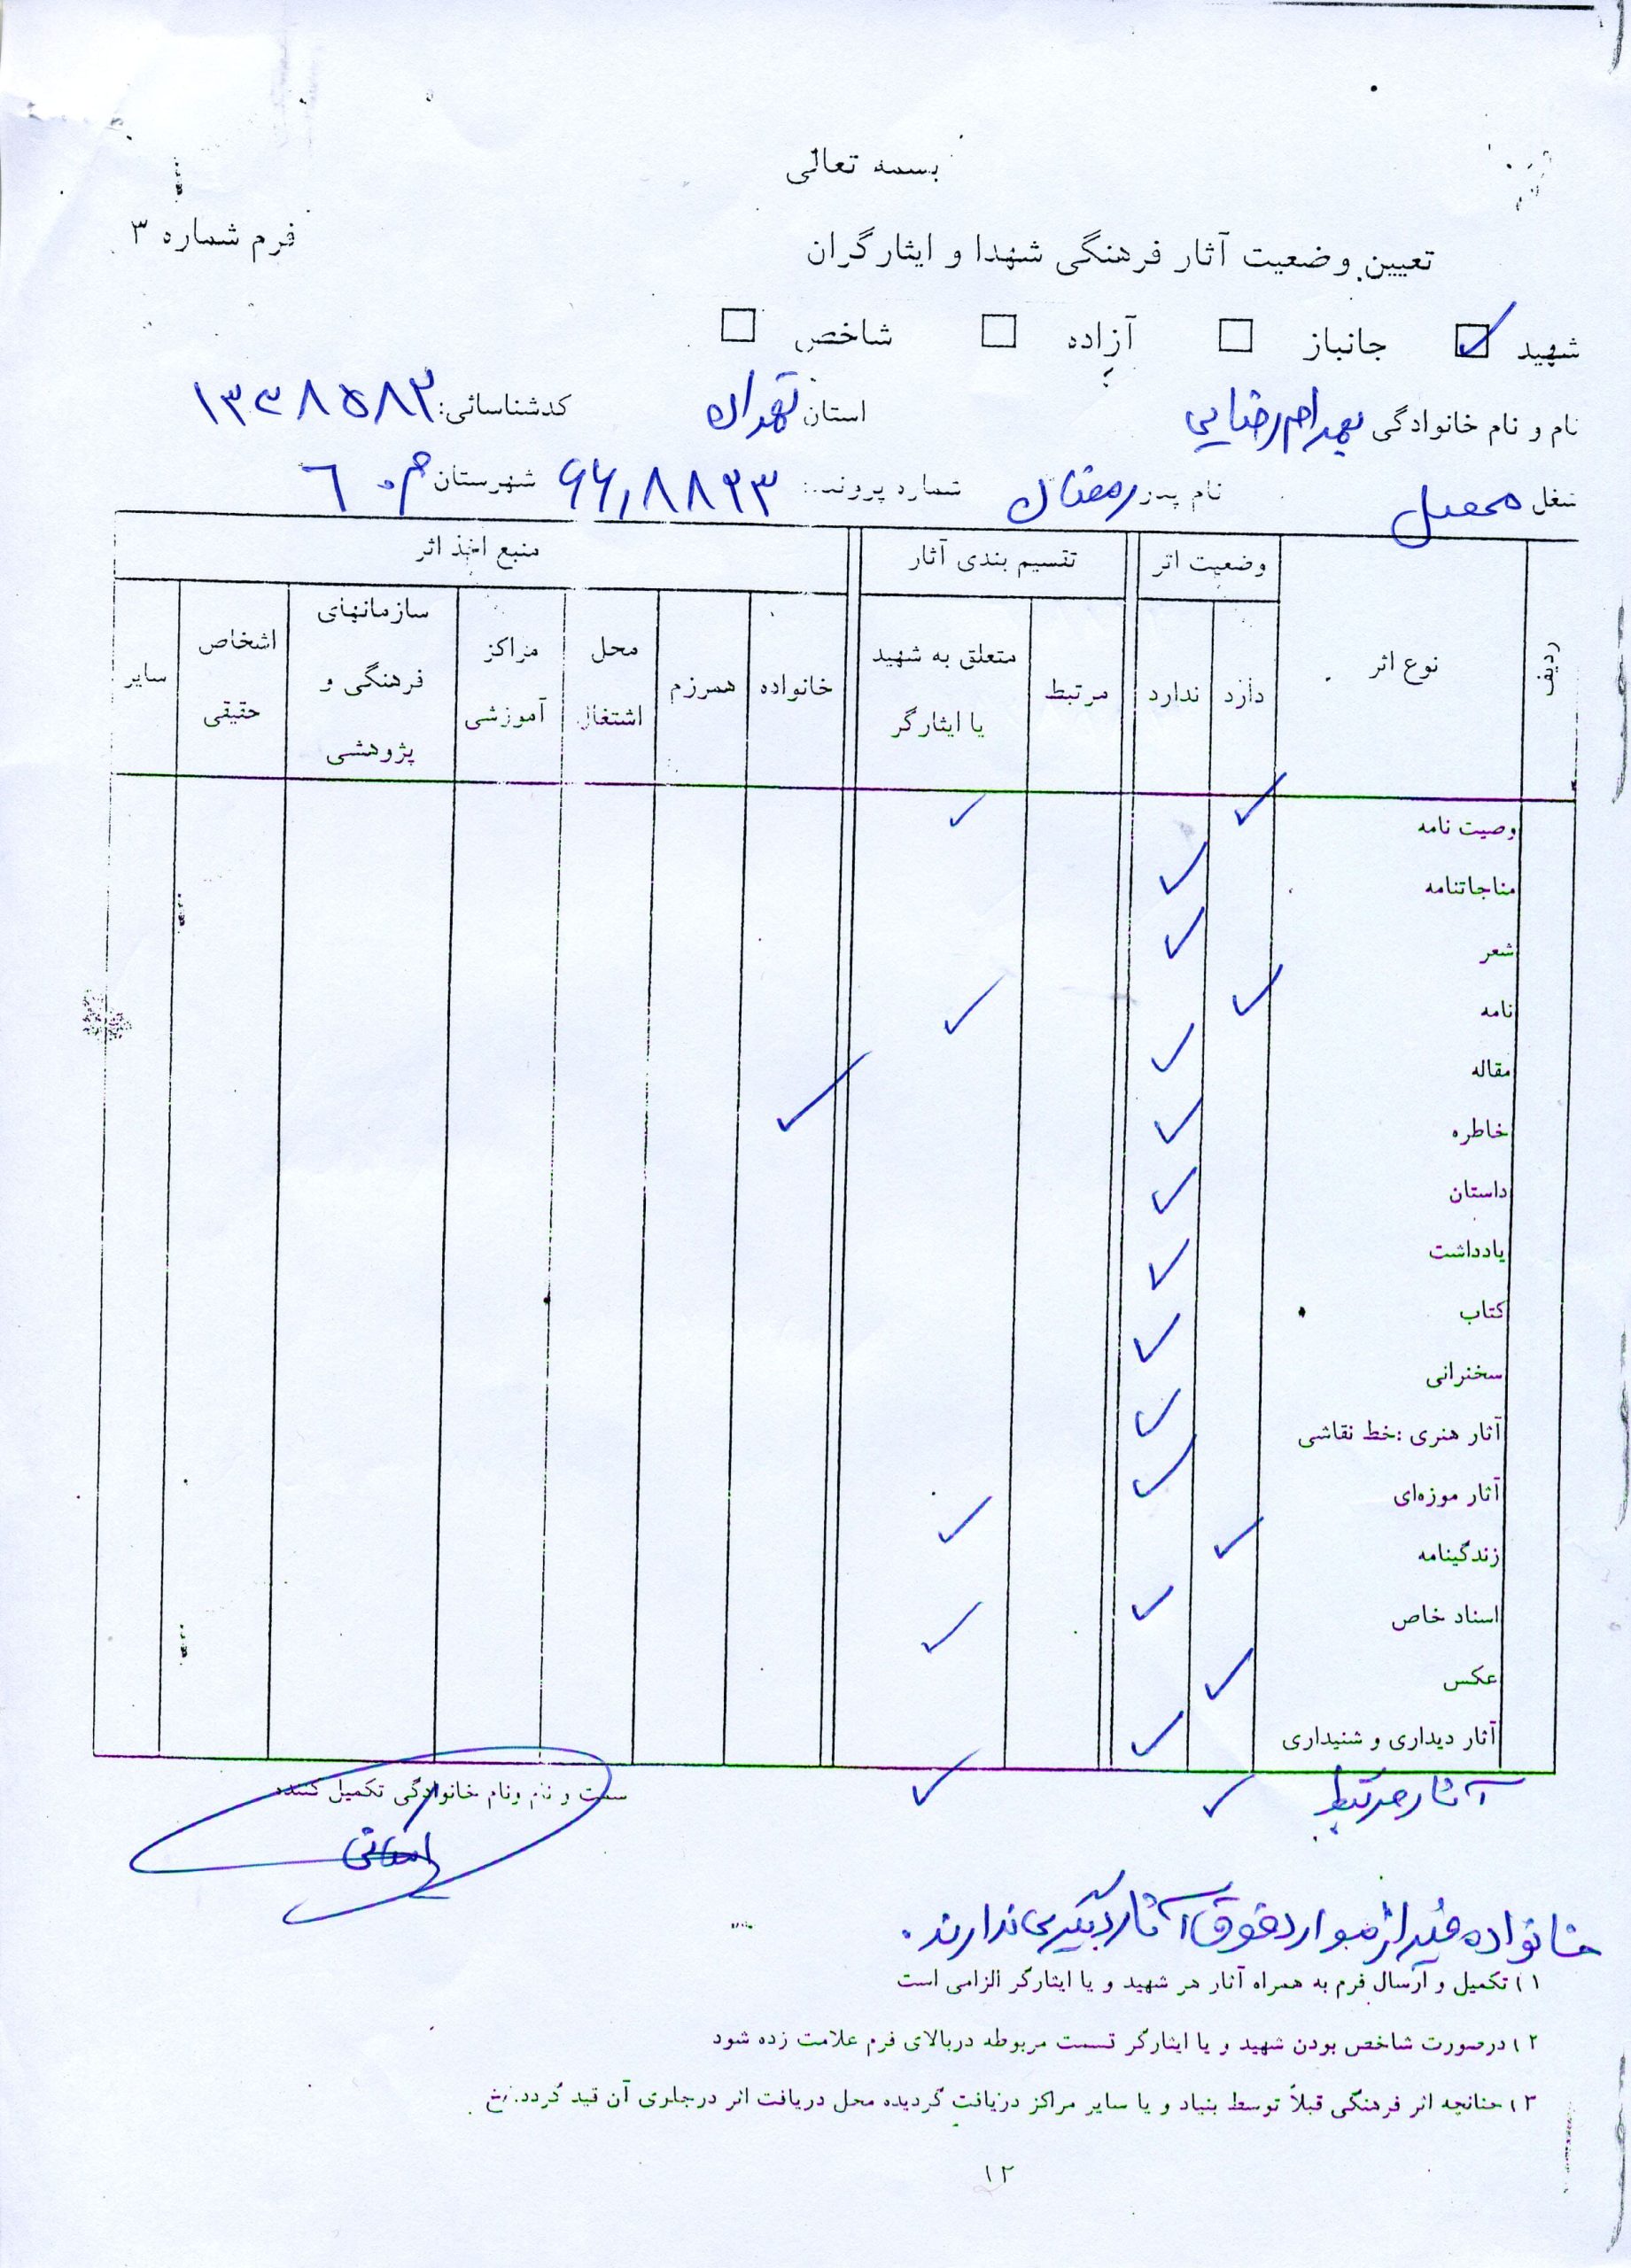 بسمه تعالی
فرم شماره ۳
تعیین وضعیت آثار فرهنگی شهدا و ایثارگران
شهید ☑ جانباز ☐ آزاده ☐ شاخص ☐
نام و نام خانوادگی بهرام رضایی استان تهران کدشناسائی: ۱۳۳۸۵۸۲
شغل محصل نام پدر رمضان شماره پرونده: شهرستان
ردیف نوع اثر وضعیت اثر تقسیم بندی آثار منبع اخذ اثر
دارد ندارد مرتبط متعلق به شهید یا ایثارگر خانواده همرزم محل اشتغال مراکز آموزشی سازمانهای فرهنگی و پژوهشی اشخاص حقیقی سایر
وصیت نامه ✓ ✓
مناجاتنامه ✓
شعر ✓
نامه ✓ ✓
مقاله ✓
خاطره ✓ ✓
داستان ✓
یادداشت ✓
کتاب ✓
سخنرانی ✓
آثار هنری :خط نقاشی ✓
آثار موزه‌ای ✓
زندگینامه ✓ ✓
اسناد خاص ✓
عکس ✓ ✓
آثار دیداری و شنیداری ✓
آثار مرتبط ✓ ✓
سمت و نام ونام خانوادگی تکمیل کننده
خانواده غیر از موارد فوق آثار دیگری ندارند.
۱) تکمیل و ارسال فرم به همراه آثار هر شهید و یا ایثارگر الزامی است
۲) درصورت شاخص بودن شهید و یا ایثارگر قسمت مربوطه دربالای فرم علامت زده شود
۳) چنانچه اثر فرهنگی قبلاً توسط بنیاد و یا سایر مراکز دریافت گردیده محل دریافت اثر درجلوی آن قید گردد.
۱۲